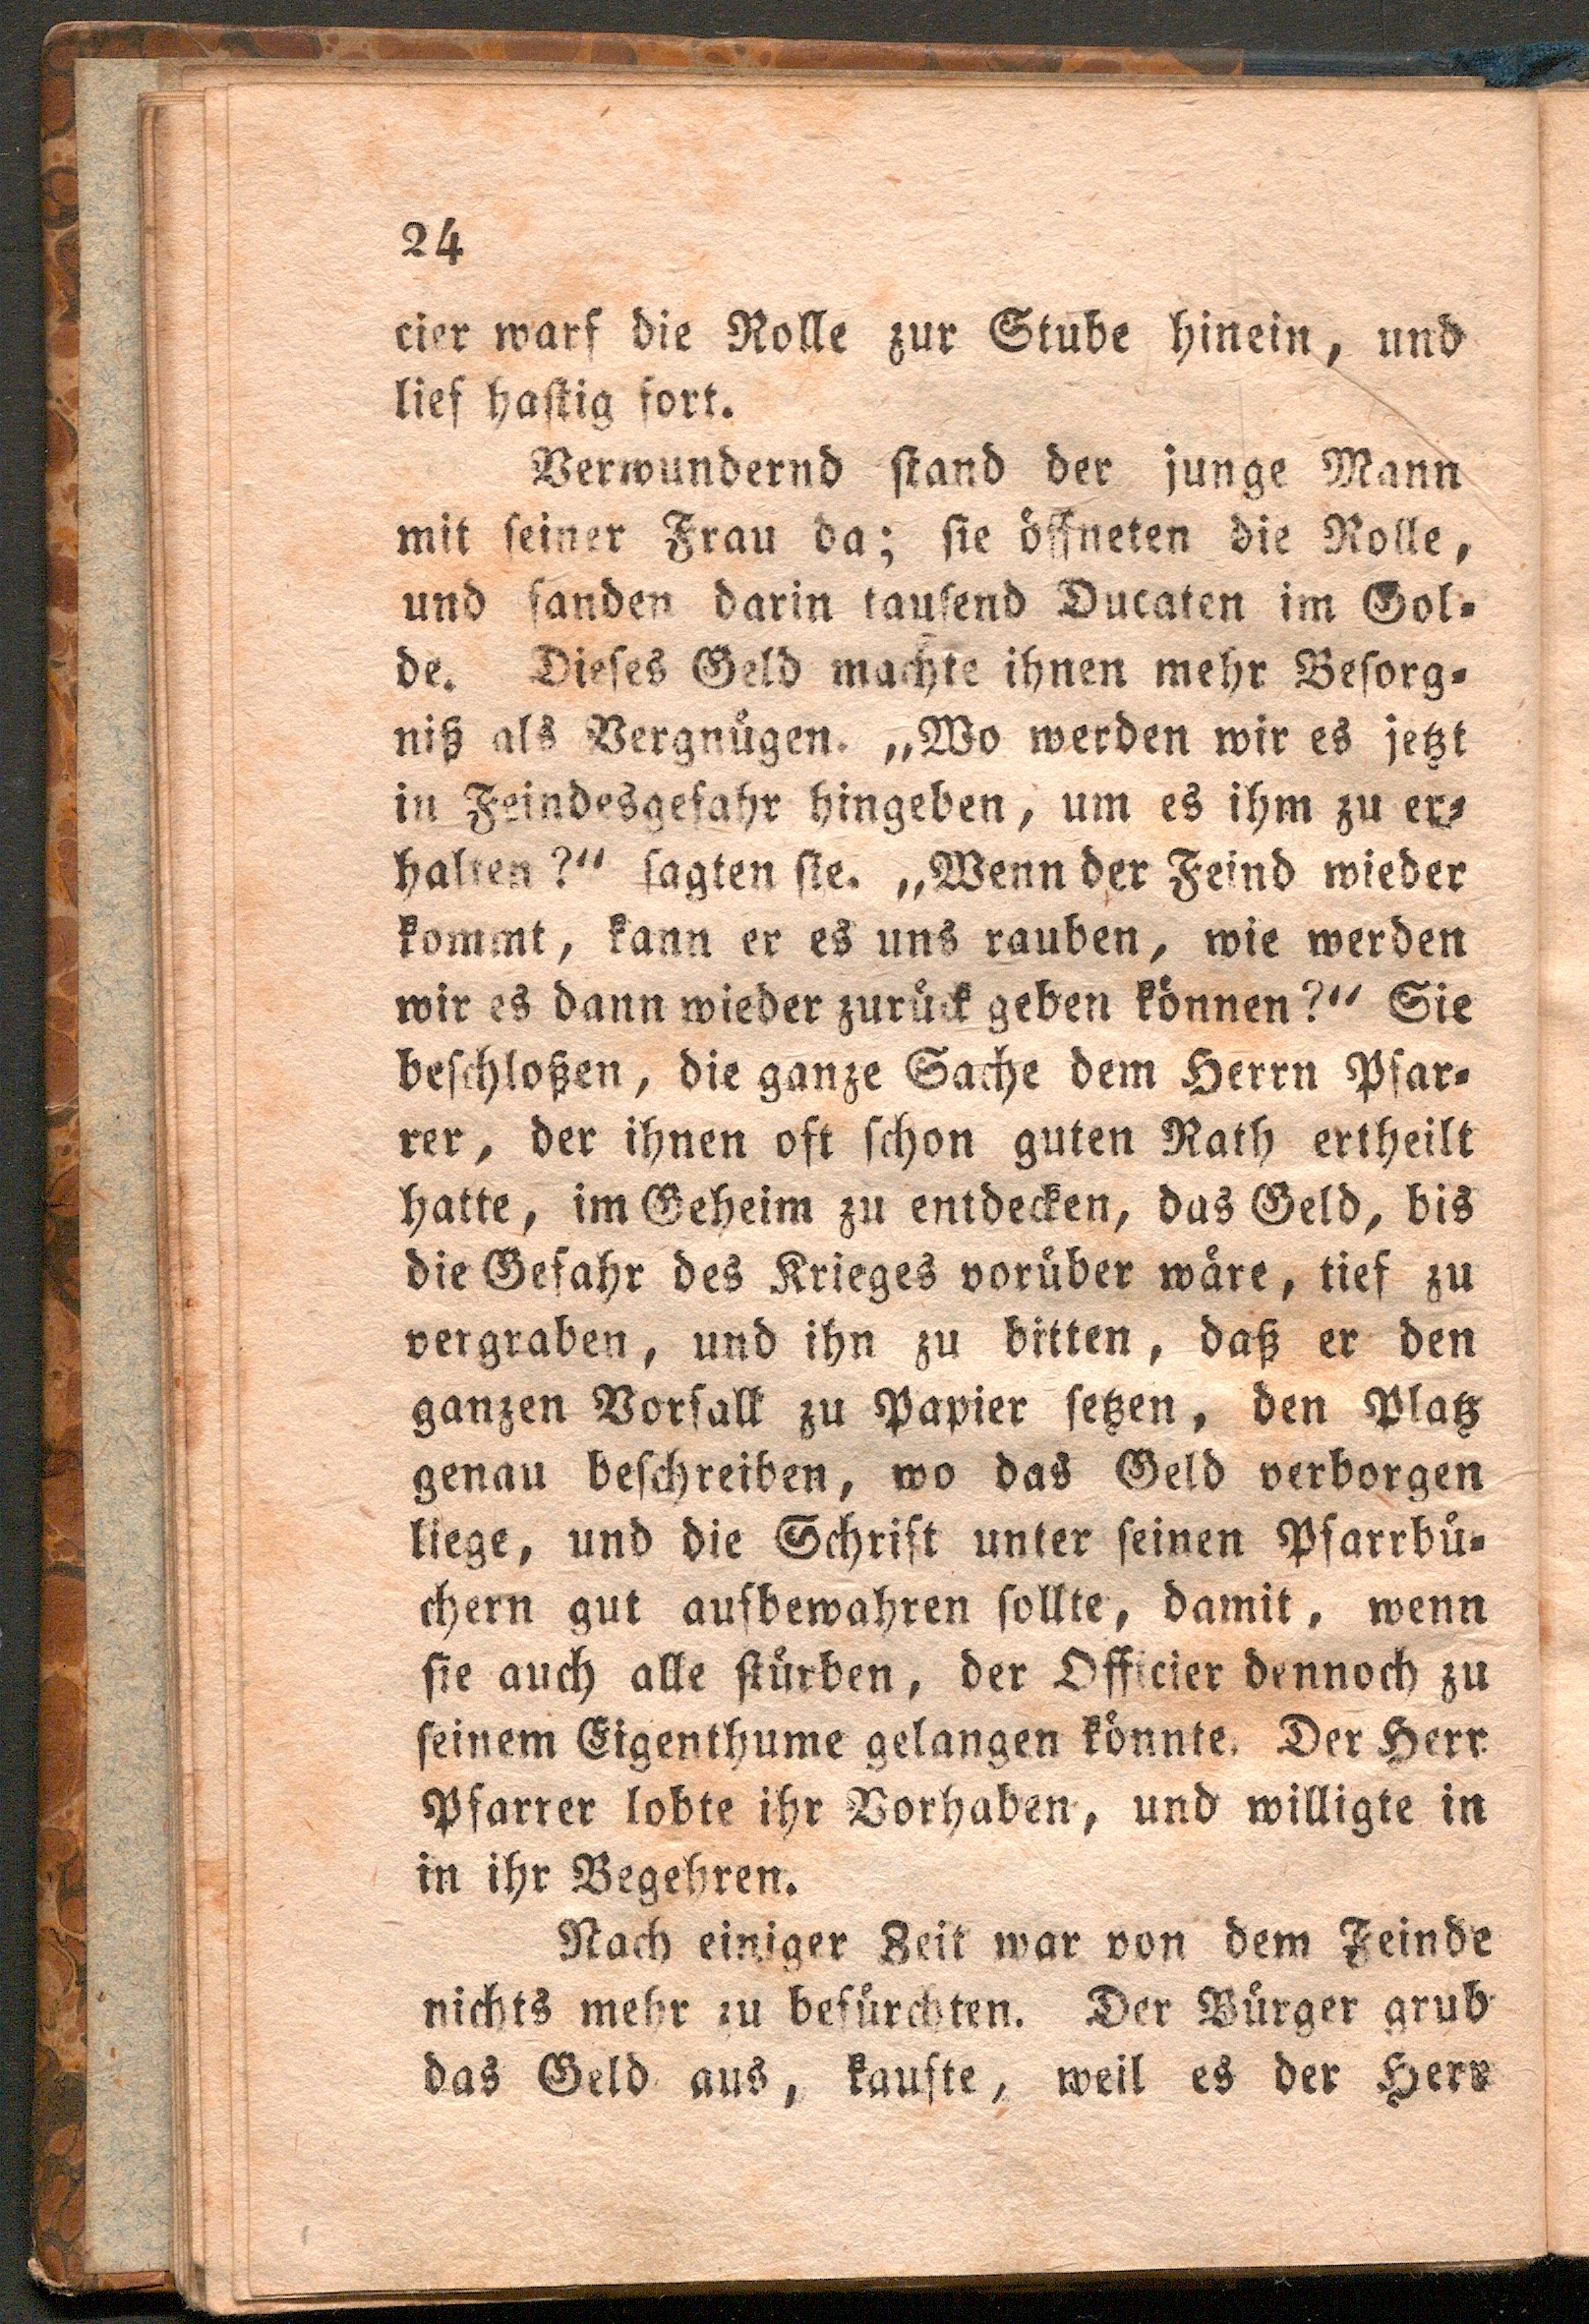 24
cier warf die Rolle zur Stube hinein, und
lief haſtig fort.
Verwundernd ſtand der junge Mann
mit ſeiner Frau da; ſie öffneten die Rolle,
und fanden darin tauſend Ducaten im Gol-
de. Dieſes Geld machte ihnen mehr Beſorg-
niß als Vergnügen. „Wo werden wir es jetzt
in Feindesgefahr hingeben, um es ihm zu er-
halten?“ ſagten ſie. „Wenn der Feind wieder
kommt, kann er es uns rauben, wie werden
wir es dann wieder zurück geben können?“ Sie
beſchloßen, die ganze Sache dem Herrn Pfar-
rer, der ihnen oft ſchon guten Rath ertheilt
hatte, im Geheim zu entdecken, das Geld, bis
die Gefahr des Krieges vorüber wäre, tief zu
vergraben, und ihn zu bitten, daß er den
ganzen Vorfall zu Papier ſetzen, den Platz
genau beſchreiben, wo das Geld verborgen
liege, und die Schrift unter ſeinen Pfarrbü-
chern gut aufbewahren ſollte, damit, wenn
ſie auch alle ſtürben, der Officier dennoch zu
ſeinem Eigenthume gelangen könnte. Der Herr
Pfarrer lobte ihr Vorhaben, und willigte in
in ihr Begehren.
Nach einiger Zeit war von dem Feinde
nichts mehr zu befürchten. Der Bürger grub
das Geld aus, kaufte, weil es der Herr